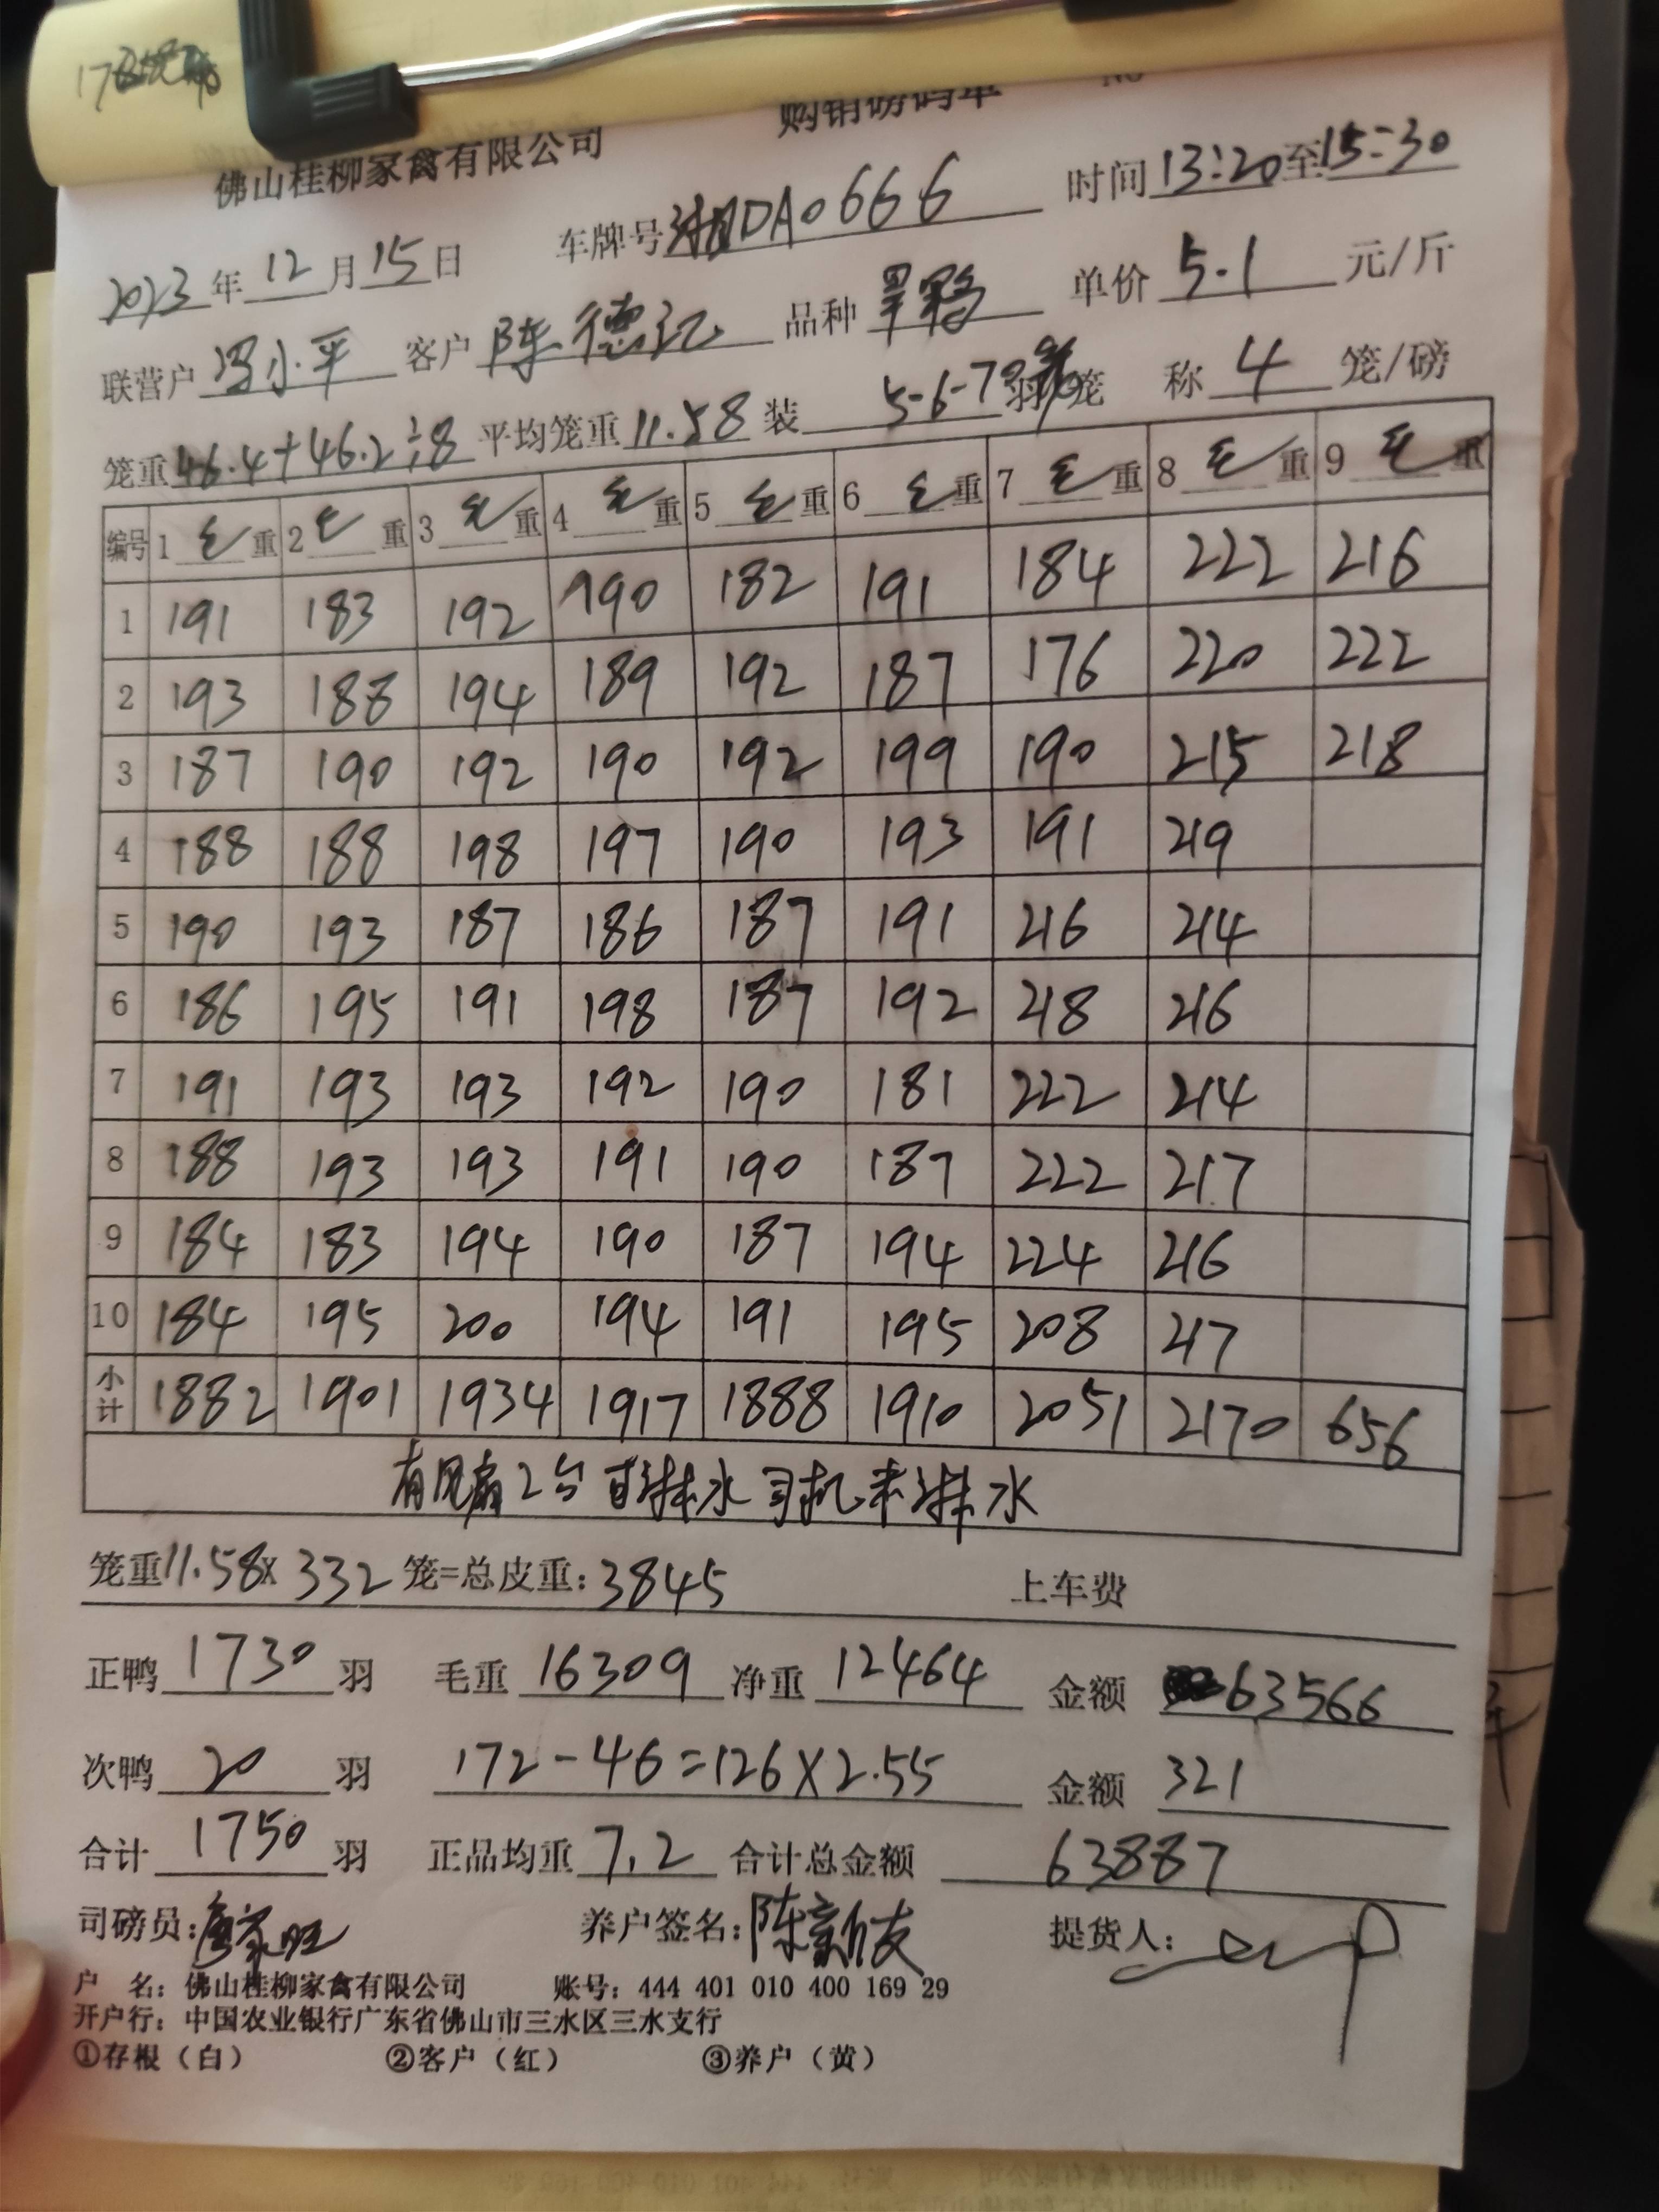 购销磅码单
佛山桂柳家禽有限公司
2023年12月15日 车牌号湘DA0666 时间13:20至15:30
联营户冯小平 客户陈德记 品种 单价5.1元/斤
笼重46.4+46.2÷8 平均笼重11.58 装5-6-7羽/笼 称4笼/磅
编号 1毛重 2毛重 3毛重 4毛重 5毛重 6毛重 7毛重 8毛重 9毛重
1 191 183 192 190 182 191 184 222 216
2 193 188 194 189 192 187 176 220 222
3 187 190 192 190 192 199 190 215 218
4 188 188 198 197 190 193 191 219
5 190 193 187 186 187 191 216 214
6 186 195 191 198 187 192 218 216
7 191 193 193 192 190 181 222 214
8 188 193 193 191 190 187 222 217
9 184 183 194 190 187 194 224 216
10 184 195 200 194 191 195 208 217
小计 1882 1901 1934 1917 1888 1910 2051 2170 656
有风扇2台 淋水 司机未淋水
笼重11.58X332笼=总皮重:3845 上车费
正鸭1730羽 毛重16309 净重12464 金额63566
次鸭20羽 172-46=126X2.55 金额321
合计1750羽 正品均重7.2 合计总金额63887
司磅员: 养户签名:陈新友 提货人:
户 名:佛山桂柳家禽有限公司 账号:444 401 010 400 169 29
开户行:中国农业银行广东省佛山市三水区三水支行
①存根(白) ②客户(红) ③养户(黄)